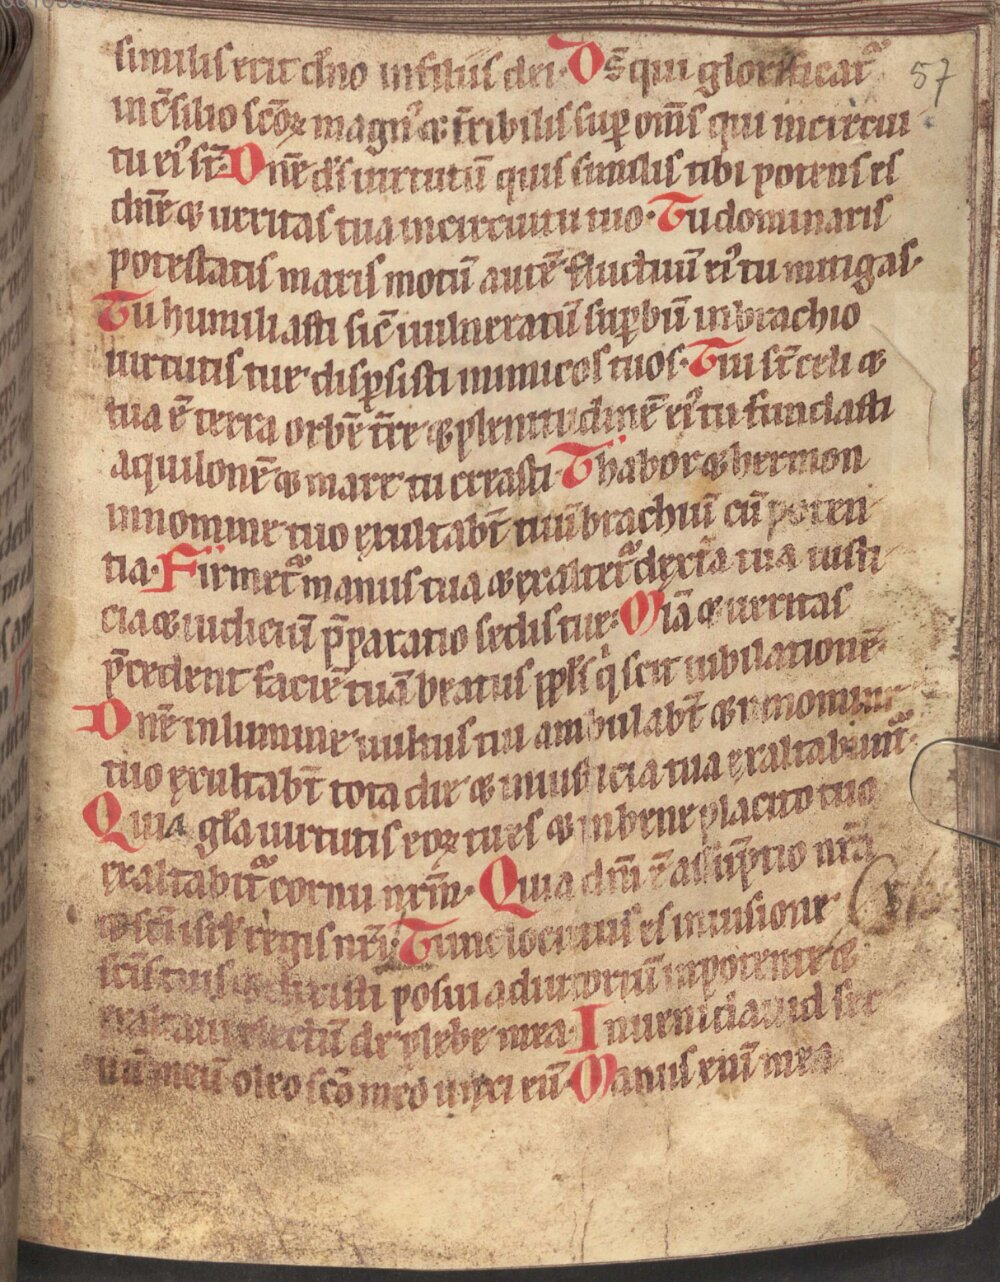 similis erit dn̄o in filiis dei· Ds̄ qui glorificat᷑
57
in cōsilio scōꝝ magnꝰ ⁊ t̄ribilis suꝑ om̄s qui in circui
tu eiꝰ st̄· Dn̄e ds̄ uirtutū quis similis tibi potens es
dn̄e ⁊ ueritas tua in circuitu tuo· Tu dominaris
potestatis maris motū autē fluctuū eiꝰ tu mitigas·
Tu humiliasti sic̄ uulneratū suꝑbū in brachio
uirtutis tue disꝑsisti inimicos tuos· Tui st̄ celi ⁊
tua ē terra orbē tr̄e ⁊ plenitudinē eiꝰ tu fundasti
aquilonē ⁊ mare tu creasti· Thabor ⁊ hermon
in nomine tuo exultabt̄ tuū brachiū cū poten
tia· Firmet᷑ manus tua ⁊ exaltet᷑ dext̄a tua iusti
cia ⁊ iudiciū p̄paratio sedis tue· Mīa ⁊ ueritas
p̄cedent faciē tuā beatus ppl̄s q̇ scit iubilationē·
Dn̄e in lumine uultus tui ambulabt̄ ⁊ in nomine
tuo exultabt̄ tota die ⁊ in iusticia tua exaltabunt᷑·
Quia gl̄a uirtutis eoꝝ tu es ⁊ in bene placito tuo
exaltabit᷑ cornu nr̄m· Quia dn̄i ē assūptio nr̄a
⁊ scī isrl̄ regis nr̄i· Tunc locutus es in uisione
scīs tuis ⁊ dixisti posui adiutoriū in potente ⁊
exaltaui electū de plebe mea· Inueni dauid ser
uū meū oleo scō meo unxi eū· Manus enī mea